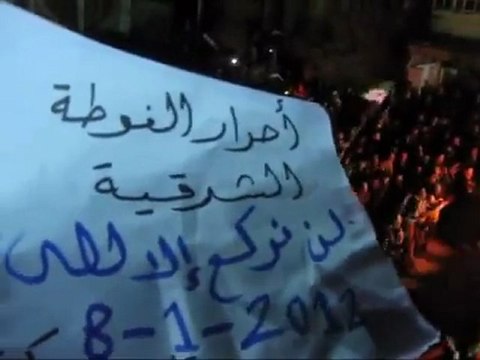 أحرار الغوطة
الشرقية
لن نركع إلا لله
8-1-2012